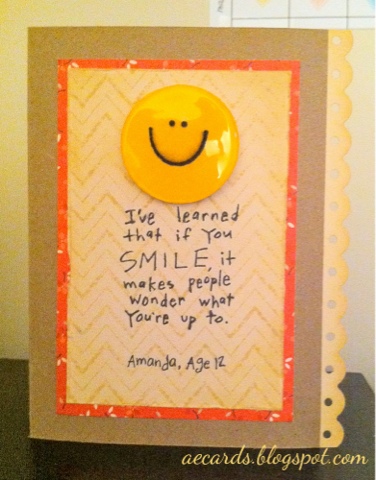 I've learned
that if you
SMILE, it
makes people
wonder what
You're up to.
Amanda, Age 12
aecards.blogspot.com